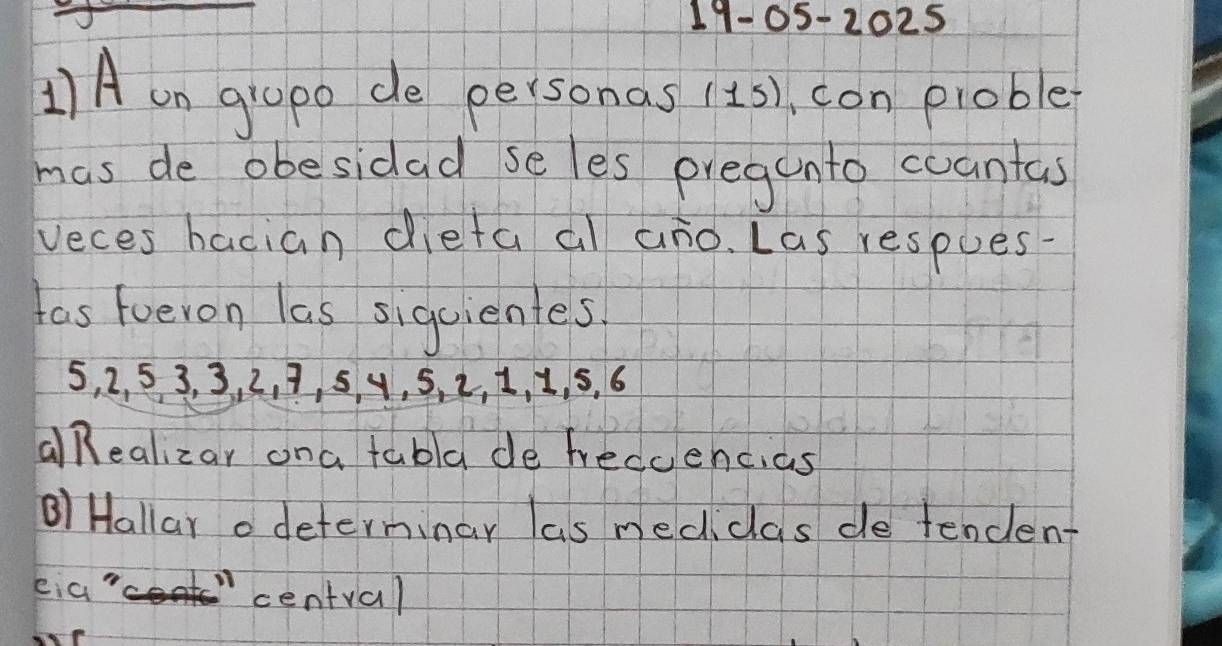 19-05-2025
1) A un grupo de personas (15), con proble-
mas de obesidad se les pregunto cuantas
veces hacian dieta al año. Las respues-
tas fueron las siguientes.
5,2,5,3,3,2,7,5,4,5,2,1,1,5,6
a) Realizar una tabla de frecuencias
B) Hallar o determinar las medidas de tenden-
cia "" central